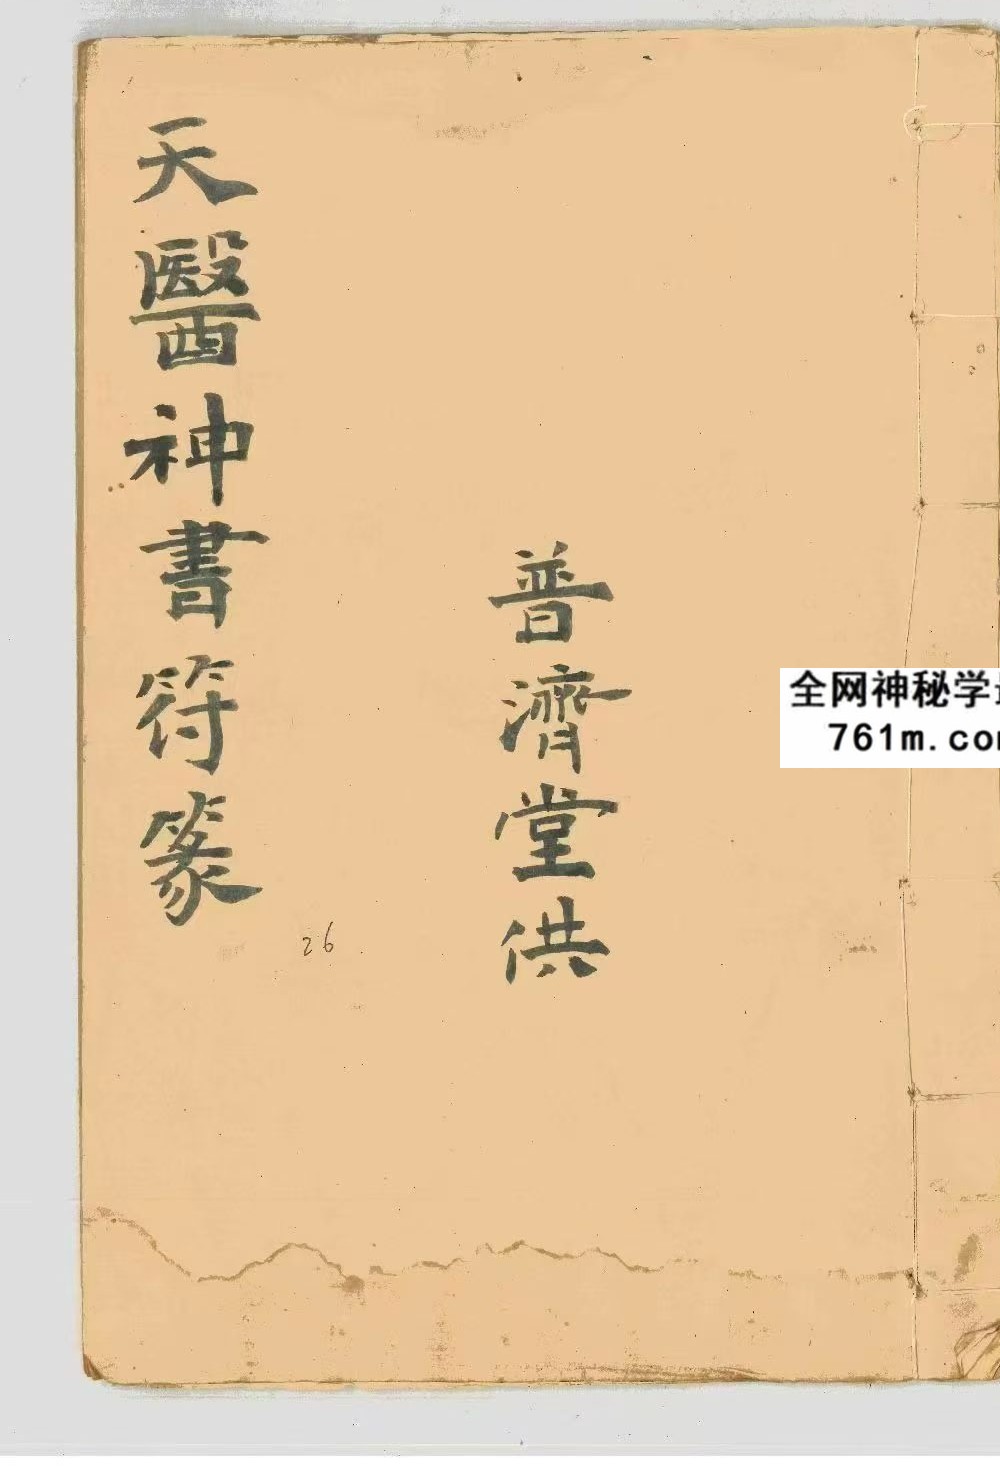 天醫神書符篆
普濟堂供
26
全网神秘学
761m.co